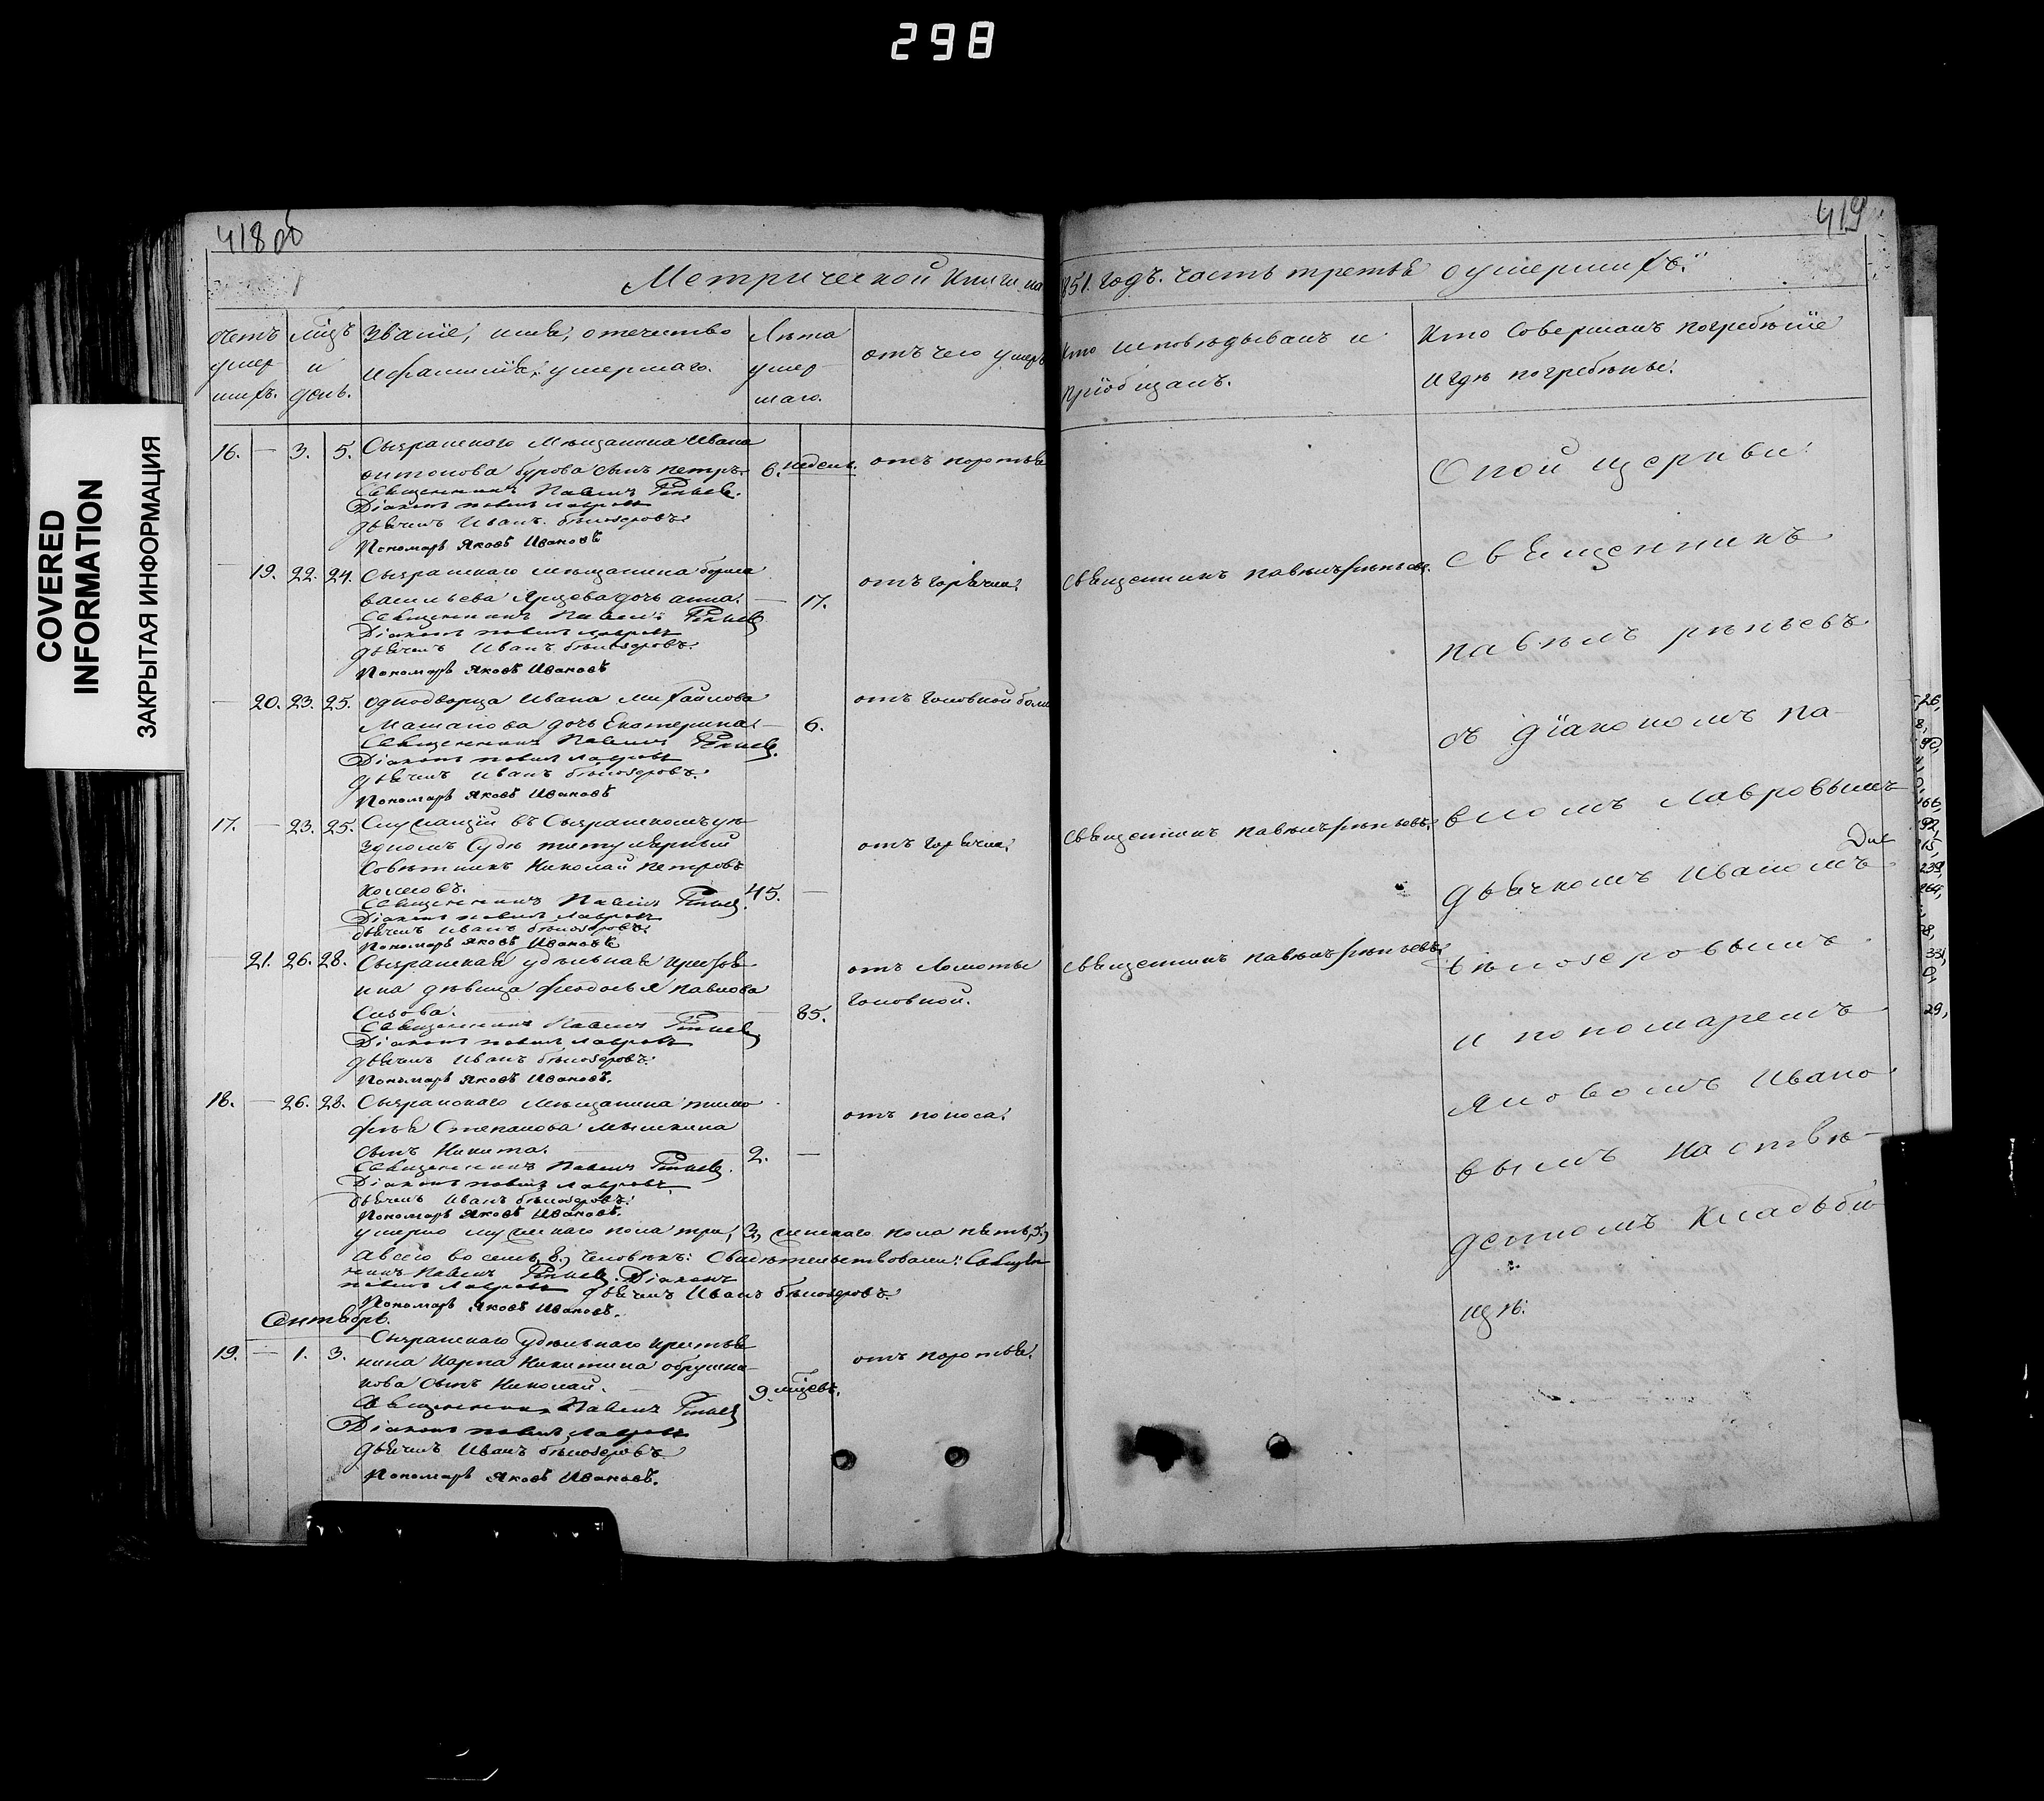 298
COVERED
INFORMATION
ЗАКРЫТАЯ ИНФОРМАЦИЯ
418 об
419
Метрической книги на 1851. годъ. часть третья оумершихъ.
Счетъ умершихъ.
мцъ и день.
Званіе, имя, отечество и фамилія, умершаго.
Лѣта умершаго.
отъ чего умеръ
Кто исповѣдывалъ и пріобщалъ.
Кто совершалъ погребѣніе и гдѣ погребѣны.
16. — 3. 5. Сызранскаго мѣщанина Ивана
антонова бурова сынъ петръ. 6. недель. отъ поротья
Священникъ Павелъ
Діаконъ павелъ лавровъ
дьячекъ Иванъ бѣлозеровъ.
Пономарь Яковъ Ивановъ
— 19. 22. 24. Сызранскаго мѣщанина бориса
васильева дочь анна. — 17. отъ горячки. священникъ павѣлъ рѣпьевъ.
Священникъ Павелъ
Діаконъ павелъ лавровъ
дьячекъ Иванъ бѣлозеровъ.
Пономарь Яковъ Ивановъ
— 20. 23. 25. однодворца Ивана Михайлова
дочь Екатерина. — 6. отъ головной боли
Священникъ Павелъ
Діаконъ павелъ лавровъ
дьячекъ Иванъ бѣлозеровъ.
Пономарь Яковъ Ивановъ
17. — 23. 25. Служащій въ Сызранскомъ уѣ-
здномъ Судѣ титулярный
Совѣтникъ Николай петровъ
45. — отъ горячки. священникъ павѣлъ рѣпьевъ.
Священникъ Павелъ
Діаконъ павелъ лавровъ
дьячекъ Иванъ бѣлозеровъ.
Пономарь Яковъ Ивановъ
21. 26. 28. Сызранская удѣльная кресья-
нка дѣвица феодосья павлова
Сизова. 85. отъ ломоты
головной. священникъ павѣлъ рѣпьевъ.
Священникъ Павелъ
Діаконъ павелъ лавровъ
дьячекъ Иванъ бѣлозеровъ.
Пономарь Яковъ Ивановъ.
18. — 26. 28. Сызранскаго мѣщанина тимо-
фѣя Степанова мышкина
сынъ Никита. 2. — отъ поноса.
Священникъ Павелъ
Діаконъ павелъ лавровъ
дьячекъ Иванъ бѣлозеровъ.
Пономарь Яковъ Ивановъ.
умерло мужескаго пола три, 3, женскаго пола пять, 5,
а всего во семь, 8, человѣкъ: Свидѣтельствовали: Священ
никъ Павелъ Діаконъ
павелъ лавровъ дьячекъ Иванъ бѣлозеровъ.
Пономарь Яковъ Ивановъ.
Сентябрь.
19. — 1. 3. Сызранскаго удѣльнаго крестья-
нина Карпа Никитина
сынъ Николай. 9. мцевъ. отъ поротья.
Священникъ Павелъ
Діаконъ павелъ лавровъ
дьячекъ Иванъ бѣлозеровъ
Пономарь Яковъ Ивановъ.
Оной церкви
священникъ
павѣлъ рѣпьевъ
съ діакономъ па-
вломъ лавровымъ
дьячкомъ Иваномъ
бѣлозеровымъ
и пономаремъ
яковомъ Ивано-
вымъ на отвѣ-
денномъ кладьби-
щѣ.